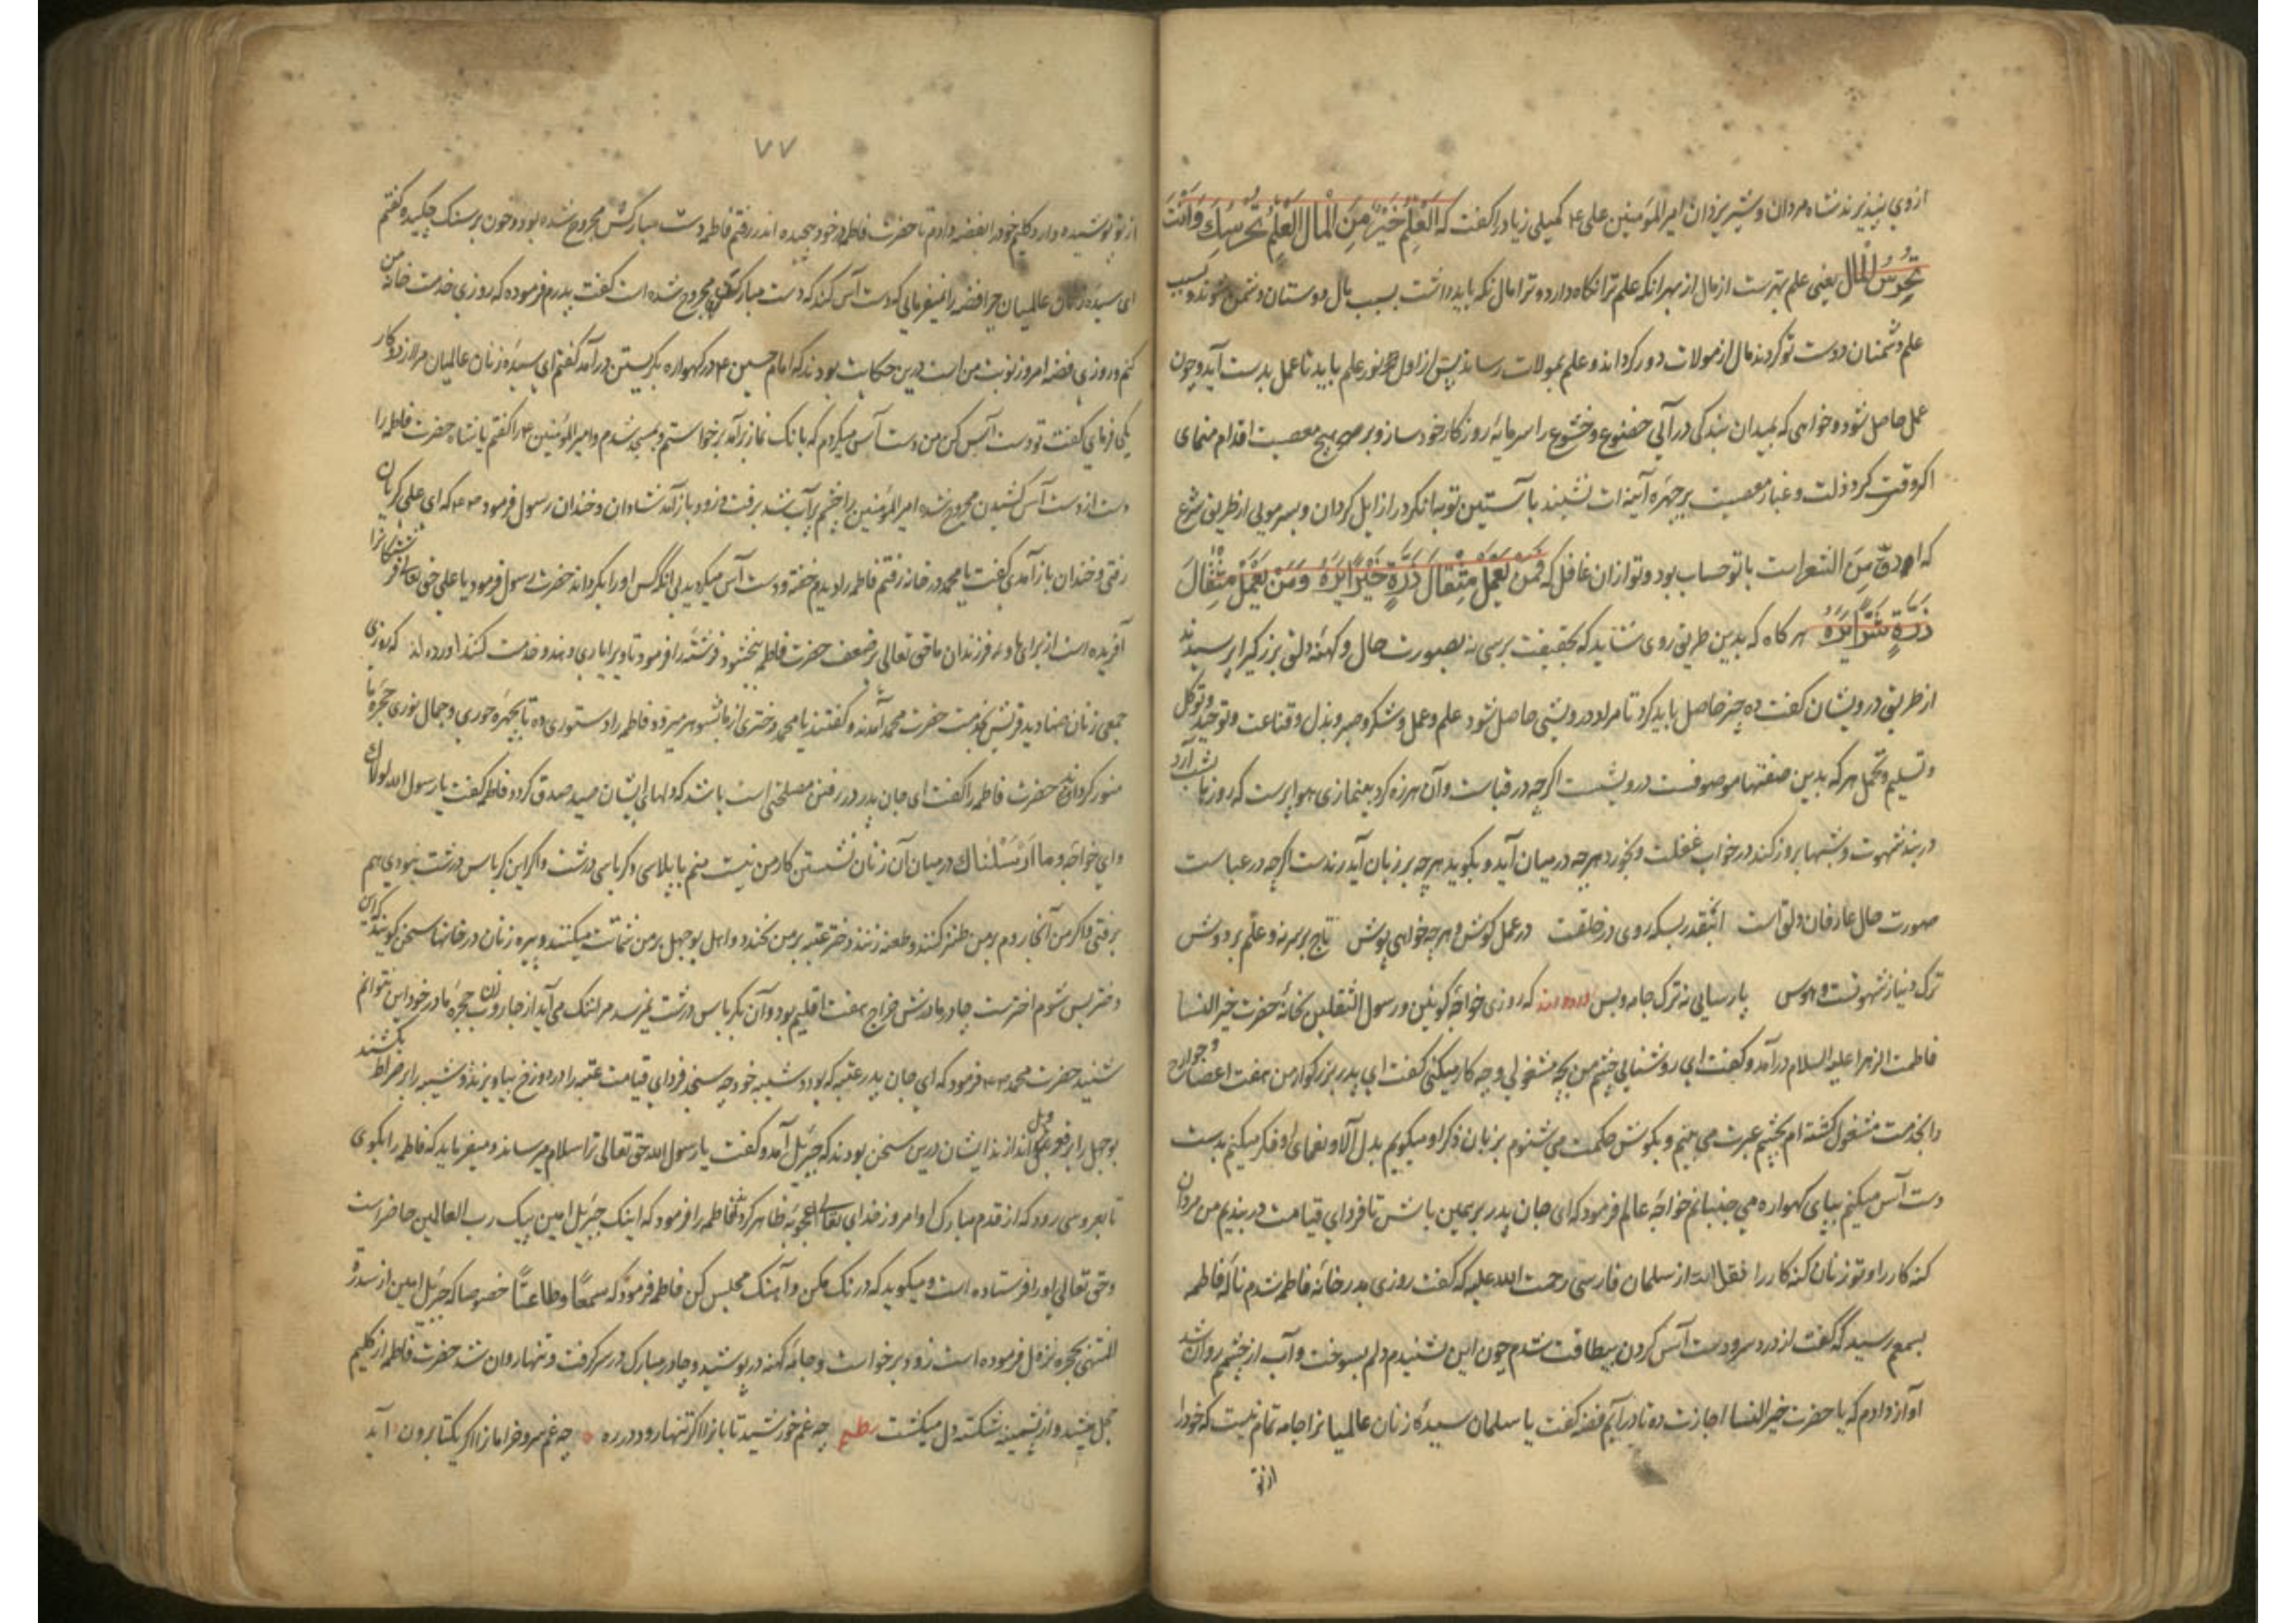 ازوی بپذیرند شاه مردان و شیر یزدان امیر المؤمنین علی ع م کمیلی زیاد را کفت که الْعِلْمُ خَیْرٌ مِنَ الْمالِ الْعِلْمُ تَحْرُسُكَ وَاَنْتَ
تَحْرُسُ الْمال یعنی علم بهترست از مال از بهر انکه علم ترا نکاه دارد و ترا مال نکه باید داشت بسبب مال دوستان دشمن شوند و بسبب
علم دشمنان دوست تو کردند مال از مولات دور کرداند و علم بمولات رساند پس از اول نور علم باید تا عمل بدست آید و چون
عمل حاصل شود و خواهی که بمیدان بندکی درآلی خضوع و خشوع را سرمایهٔ روزکار خود ساز و بر هیچ معصیت اقدام منمای
اکر وقتی کرد ذلت و غبار معصیت بر چهره آینه ات نشیند با آستین توبه انکرد را زایل کردان و بسر مویی از طریق شرع
که ادقّ مِنَ الشعر است با تو حساب بود و تو ازان غافل که فَمَنْ یَعْمَلْ مِثْقالَ ذَرَّةٍ خَیْرًا یَرَهُ وَمَنْ یَعْمَلْ مِثْقالَ
ذَرَّةٍ شَرًّا یَرَهُ هر کاه که بدین طریق روی شاید که بحقیقت برسی نه بصورت حال و کهنه دلق بزرکیرا پرسیدند
از طریق درویشان کفت ده چیز حاصل باید کرد تا مراد درویشی حاصل شود علم و عمل و شکر و صبر و بذل و قناعت و توحید و توکل
و تسلیم و تحمل هر که بدین صفتها موصوفست درویشست اکرچه در قباست و آن هرزه کرد بینمازی هوا پرست که روزها بشب آرد
در بند شهوت و شبها بروز کند در خواب غفلت و بخورد هرچه در میان آید و بکوید هرچه بر زبان آید رندست اکرچه در عباست
صورت حال عارفان دلق است اینقدر بسکه روی در خلقست در عمل کوش و هرچه خواهی پوش تاج بر سر نه و علم بر دوش
ترک دنیاز شهوتست و هوس پارسایی نه ترک جامه و بس آورده اند که روزی خواجهٔ کونین و رسول الثقلین بخانهٔ حضرت خیر النسا
فاطمت الزهرا علیه السلام درآمد و کفت ای روشنایی چشم من بچه مشغولی و چه کار میکنی کفت ای پدر بزرکوار من هفت اعضا و جوارح
را بخدمت مشغول کشته ام بچشم عبرت می بینم و بکوش حکمت می شنوم بزبان ذکر او میکویم بدل آلا و نعمای او فکر میکنم بدست
دست آس میکنم بپای کهواره می جنبانم خواجهٔ عالم فرمود که ای جان پدر بر همین باش تا فردای قیامت دربندیم من مردان
کنه کار را و تو زنان کنه کار را نقل است از سلمان فارسی رحمت الله علیه که کفت روزی بدر خانهٔ فاطمه شدم نالهٔ فاطمه
بسمع رسید که کفت از درد سر و دست آس کردن بیطاقت شدم چون این بشنیدم دلم بسوخت و آب از چشمم روان شد
آواز دادم که یا حضرت خیر النسا اجازت ده تا درآیم فضه کفت یا سلمان سیدهٔ زنان عالمیانرا جامه تمام نیست که خود را
از تو
۷۷
از تو پوشیده دارد کلیم خود را بفضه دادم تا حضرت فاطمه در خود پیچیده اندر رفتم فاطمه دست مبارکش مجروح شده بود و خون بر سنک چکیده کفتم
ای سیدهٔ زنان عالمیان چرا فضه را نمیفرمایی که دست آس کند که دست مبارکت مجروح شده است کفت پدرم فرموده که روزی خدمت خانه من
کنم و روزی فضه امروز نوبت من است درین حکایت بودند که امام حسین ع م در کهواره بکریستن درآمد کفتم ای سیدهٔ زنان عالمیان مرا از دو کار
یکی فرمای کفت تو دست آس کن من دست آس میکردم که بانک نماز برآمد برخواستم و بمسجد شدم و امیر المؤمنین ع م را کفتم یا شاه حضرت فاطمه را
دست از دست آس کشیدن مجروح شده امیر المؤمنین را چشم پر آب شد برفت و زود باز آمد شادان و خندان رسول فرمود ص م که ای علی کریان
رفتی و خندان باز آمدی کفت یا محمد در خانه رفتم فاطمه را دیدم خفته و دست آس میکردید بی انکه کس او را بکرداند حضرت رسول فرمود یا علی حق تعالی فرشتکانرا
آفریده است از برای ما و فرزندان ما حق تعالی بر ضعف حضرت فاطمه ببخشود فرشته را فرمود تا ویرا یاری دهد و خدمت کند آورده اند که روزی
جمعی زنان صنادید قریش بخدمت حضرت محمد آمدند و کفتند یا محمد دختری از ما بشوهر میرود فاطمه را دستوری ده تا بچهره حوری و جمال نوری حجرهٔ ما
منور کرداند حضرت فاطمه را کفت ای جان پدر در رفتن مصلحتی است باشد که دلهای ایشان صید صدق کردد فاطمه کفت یا رسول الله لولاک
وای خواجه و ما اَرْسَلْناكَ در میان آن زنان نشستن کار من نیست منم با پلاسی و کرباسی درشت و اکر این کرباس درشت نبودی هم
برفتی و اکر من آنجا روم بر من طنز کنند و طعنه زنند دختر عتبه بر من بخندد و اهل بوجهل بر من شماتت میکنند و پیره زنان در خانها سخن کویند که این
دختر بس شوم اخترست چادر مادرش خراج هفت اقلیم بود و آن بکرباس درشت نمیرسد مرا ننک می آید از جاروب حجرهٔ مادر خود این نتوانم
شنید حضرت محمد ص م فرمود که ای جان پدر عتبه که بود و شیبه خود چه سنجد فردای قیامت عتبه را در دوزخ بیاویزند و شیبه را بر صراط بکشند
بوجهل را بر قعر ویل اندازند ایشان درین سخن بودند که جبرئیل آمد و کفت یا رسول الله حق تعالی ترا سلام میرساند و میفرماید که فاطمه را بکوی
تا بعروسی رود که از قدم مبارک او امروز خدای تعالی اعجوبهٔ ظاهر کرداند فاطمه را فرمود که اینک جبرئیل امین پیک رب العالمین حاضر است
و حق تعالی او را فرستاده است و میکوید که درنک مکن و آهنک مجلس کن فاطمه فرمود که سمعًا و طاعتًا خصوصا که جبرئیل امین از سدرة
المنتهی بحجره نزول فرموده است زود برخواست و جامهٔ کهنه در پوشید و چادر مبارک در سر کرفت و تنها روان شد حضرت فاطمه از کلیم
خجل میشد و از پشمینه شکسته دل میکشت نظم چه غم خورشید تابانرا اکر تنها رود در ره چه غم سرو خرامانرا اکر یکتا برون آید